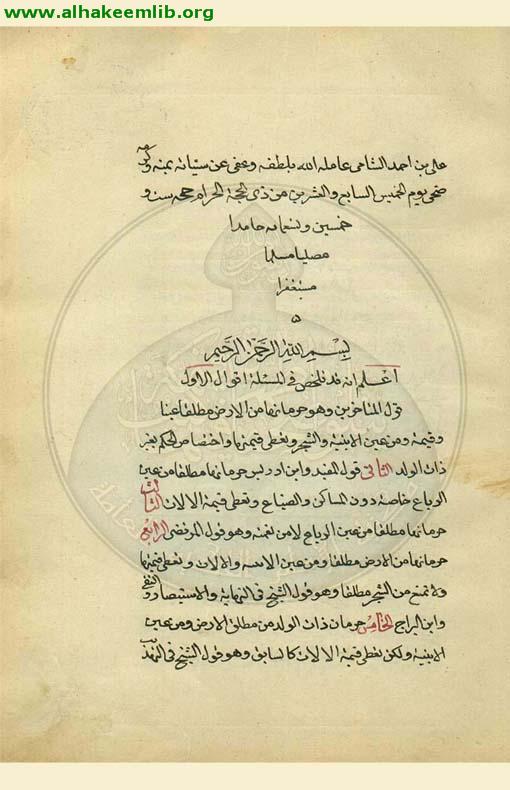 www.alhakeemlib.org
على بن احمد الشامى عامله الله بلطفه وعفى عن سيئاته بمنه وكرمه
ضحى يوم الخميس السابع والعشرين من ذى الحجة الحرام حجه ست و
خمسين وتسعمائه حامدا
مصليا مسلما
مستغفرا
بسم الله الرحمن الرحيم
اعلم انه قد تلخص فى المسئلة اقوال الاول
قول المتأخرين وهو حرمانها من الارض مطلقا عينا
وقيمة ومن عين الابنية والشجر وتعطى قيمتها واختصاص الحكم بغير
ذات الولد الثانى قول المفيد وابن ادريس حرمانها مطلقا من عين
الرباع خاصة دون المساكن والضياع وتعطى قيمة الالات الثالث
حرمانها مطلقا من عين الرباع لا من قيمته وهو قول المرتضى الرابع
حرمانها من الارض مطلقا ومن عين الابنيه والالات وتعطى قيمتها
ولا تمنع من الشجر مطلقا وهو قول الشيخ فى النهاية والاستبصار والتقى
وابن البراج الخامس حرمان ذات الولد من مطلق الارض ومن عين
الابنية ولكن تعطى قيمة الالات كالسابق وهو قول الشيخ فى التهذيب